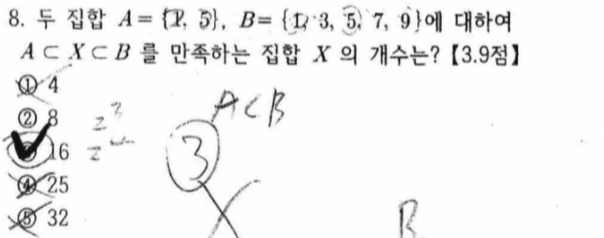 8. 두 집합 A = {1, 5}, B = {1, 3, 5, 7, 9}에 대하여
A ⊂ X ⊂ B 를 만족하는 집합 X 의 개수는?【3.9점】
① 4
② 8
③ 16
④ 25
⑤ 32
A⊂B
2³
3
B